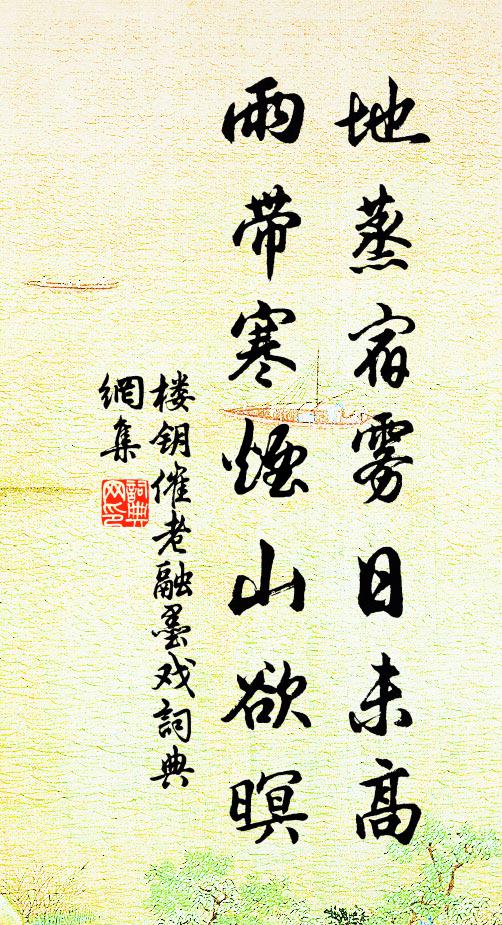 地蒸宿雾日未高
雨带寒煙山欲暝
楼钥催老融墨戏詞典
網集
詞典网印